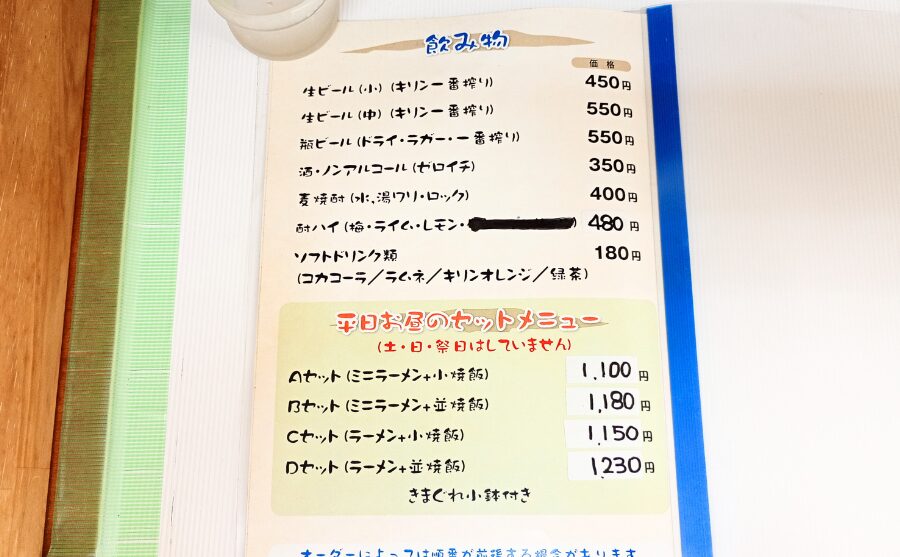 飲み物
価格
生ビール(小)(キリン一番搾り) 450円
生ビール(中)(キリン一番搾り) 550円
瓶ビール(ドライ・ラガー・一番搾り) 550円
酒・ノンアルコール(ゼロイチ) 350円
麦焼酎(水,湯ワリ・ロック) 400円
酎ハイ(梅・ライム・レモン・ ) 480円
ソフトドリンク類 180円
(コカコーラ/ラムネ/キリンオレンジ/緑茶)
平日お昼のセットメニュー
(土・日・祭日はしていません)
Aセット(ミニラーメン+小焼飯) 1,100円
Bセット(ミニラーメン+並焼飯) 1,180円
Cセット(ラーメン+小焼飯) 1,150円
Dセット(ラーメン+並焼飯) 1230円
きまぐれ小鉢付き
オーダーによっては順番が前後する場合があります